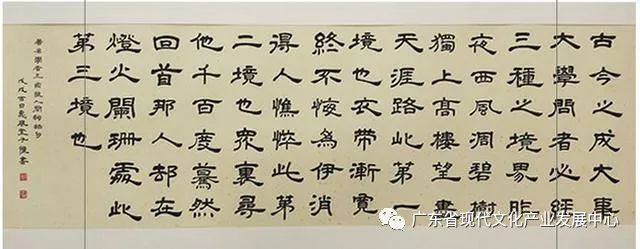 古今之成大事
大學問者必經
三種之境界昨
夜西風凋碧樹
獨上高樓望盡
天涯路此第一
境也衣帶漸寬
終不悔為伊消
得人憔悴此第
二境也眾裏尋
他千百度驀然
回首那人却在
燈火闌珊處此
第三境也
學者王國維人間詞話句
戊戌吉日
广东省现代文化产业发展中心